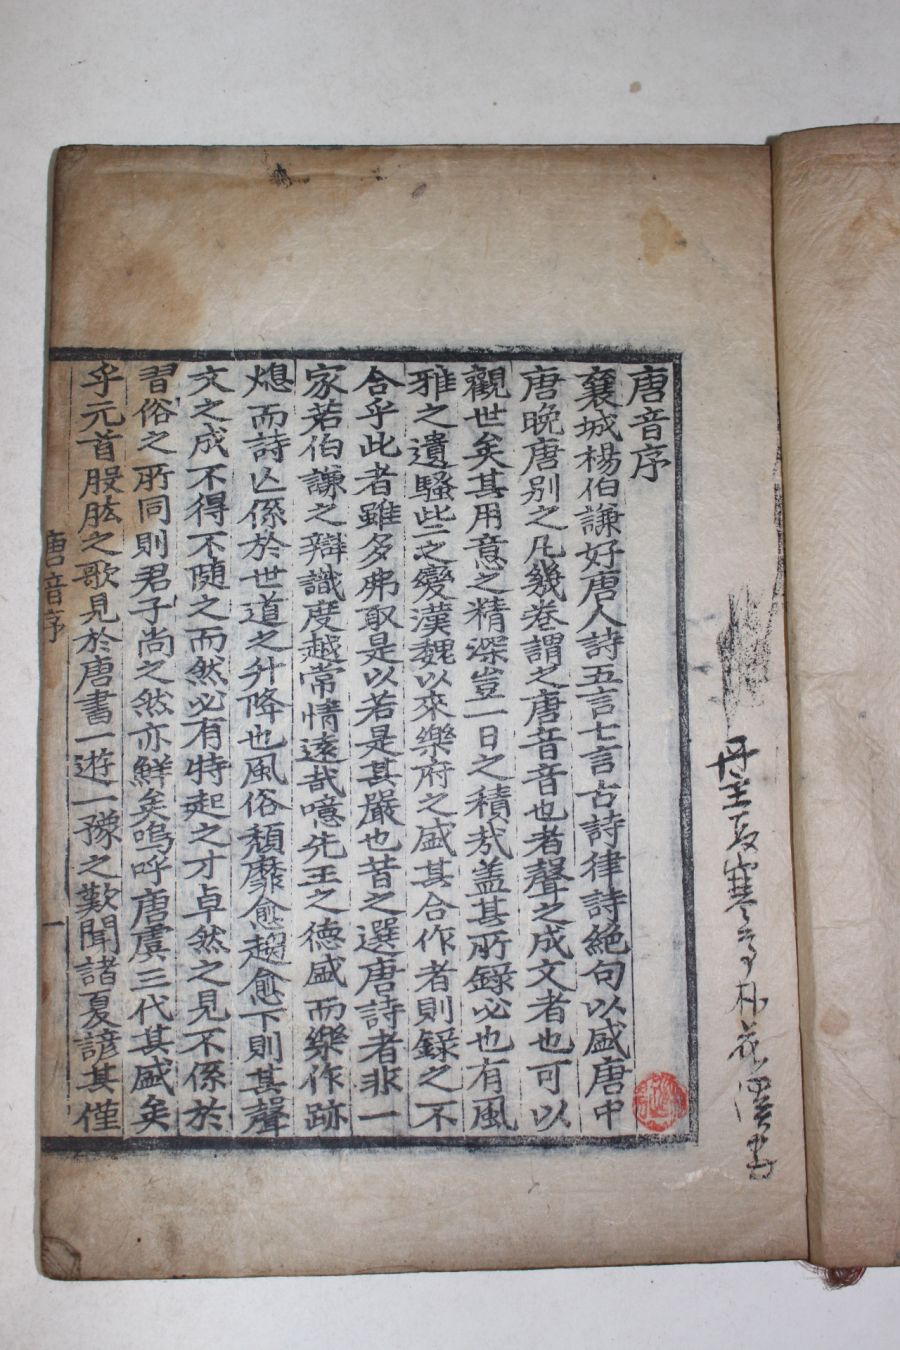 唐音序
襄城楊伯謙好唐人詩五言七言古詩律詩絶句以盛唐中
唐晚唐别之凡幾卷謂之唐音音也者聲之成文者也可以
觀世矣其用意之精深豈一日之積㢤盖其所錄必也有風
雅之遺騷些之變漢魏以來樂府之盛其合作者則錄之不
合乎此者雖多弗取是以若是其嚴也昔之選唐詩者非一
家若伯謙之辯識度越常情遠哉噫先王之德盛而樂作跡
熄而詩亡係於世道之升降也風俗頹靡愈趨愈下則其聲
文之成不得不隨之而然必有特起之才卓然之見不係於
習俗之所同則君子尚之然亦鮮矣嗚呼唐虞三代其盛矣
乎元首股肱之歌見於唐書一遊一豫之歎聞諸夏諺其僅
唐音序
一